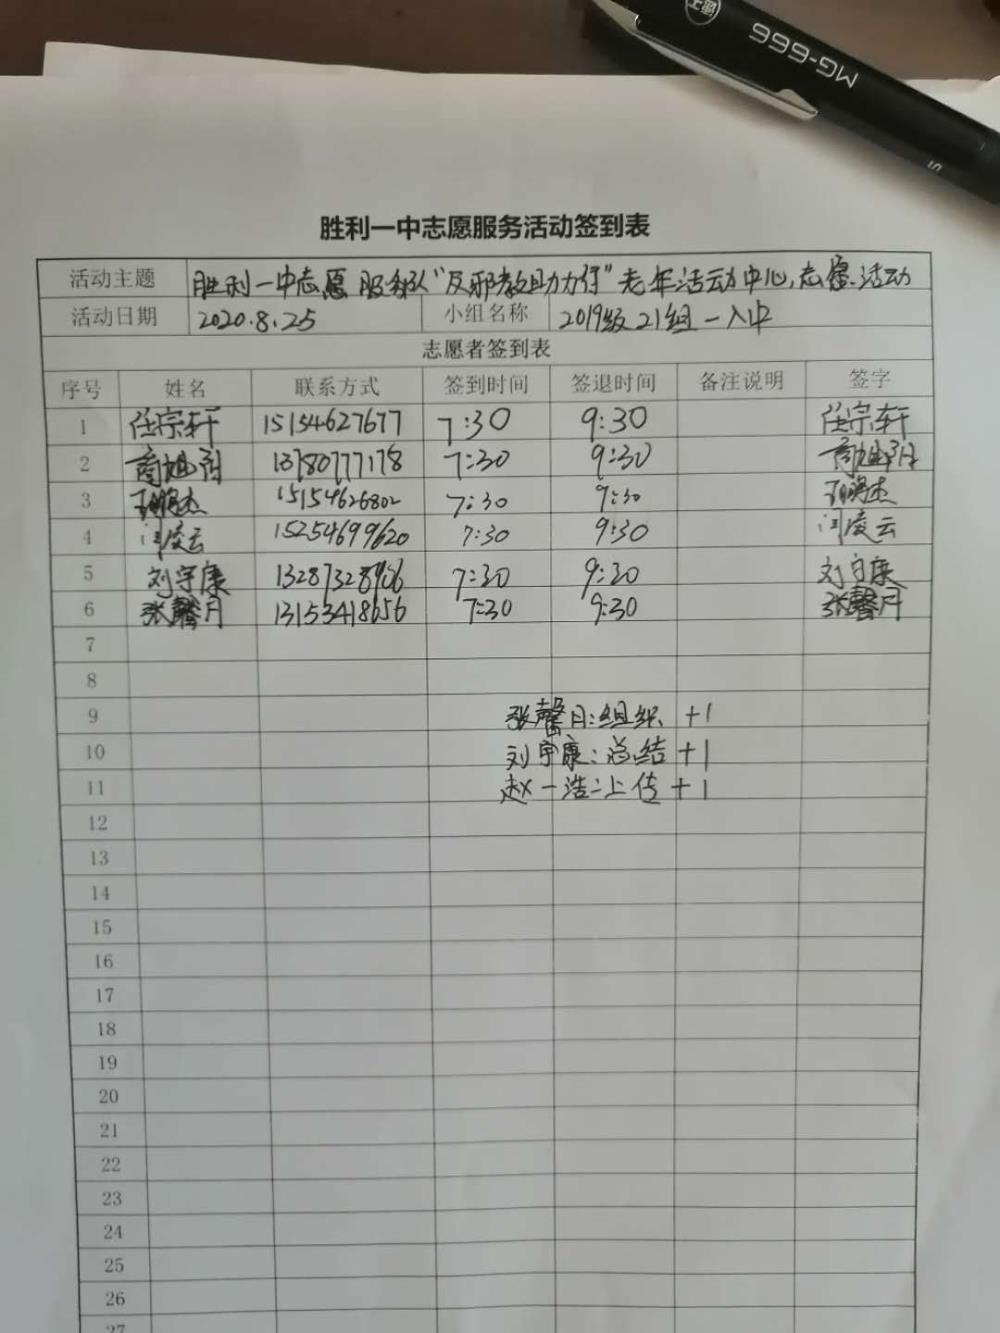 MG-666
胜利一中志愿服务活动签到表
活动主题 胜利一中志愿服务队"反邪教助力行"老年活动中心志愿活动
活动日期 2020.8.25 小组名称 2019级21组
志愿者签到表
序号 姓名 联系方式 签到时间 签退时间 备注说明 签字
1 任宗轩 15154627677 7:30 9:30 任宗轩
2 13780777178 7:30 9:30
3 15154626802 7:30 9:30
4 闫凌云 15254699620 7:30 9:30 闫凌云
5 刘宇康 7:30 9:30 刘宇康
6 张馨月 13153418656 7:30 9:30 张馨月
7
8
9 张馨月:组织 +1
10 刘宇康:总结 +1
11 赵一浩:上传 +1
12
13
14
15
16
17
18
19
20
21
22
23
24
25
26
27